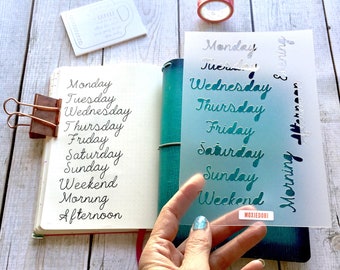 Monday
Tuesday
Wednesday
Thursday
Friday
Saturday
Sunday
Weekend
Morning
Afternoon
Monday
Tuesday
Wednesday
Thursday
Friday
Saturday
Sunday
Weekend
Evening
&
Afternoon
Morning
MOXIEDORI